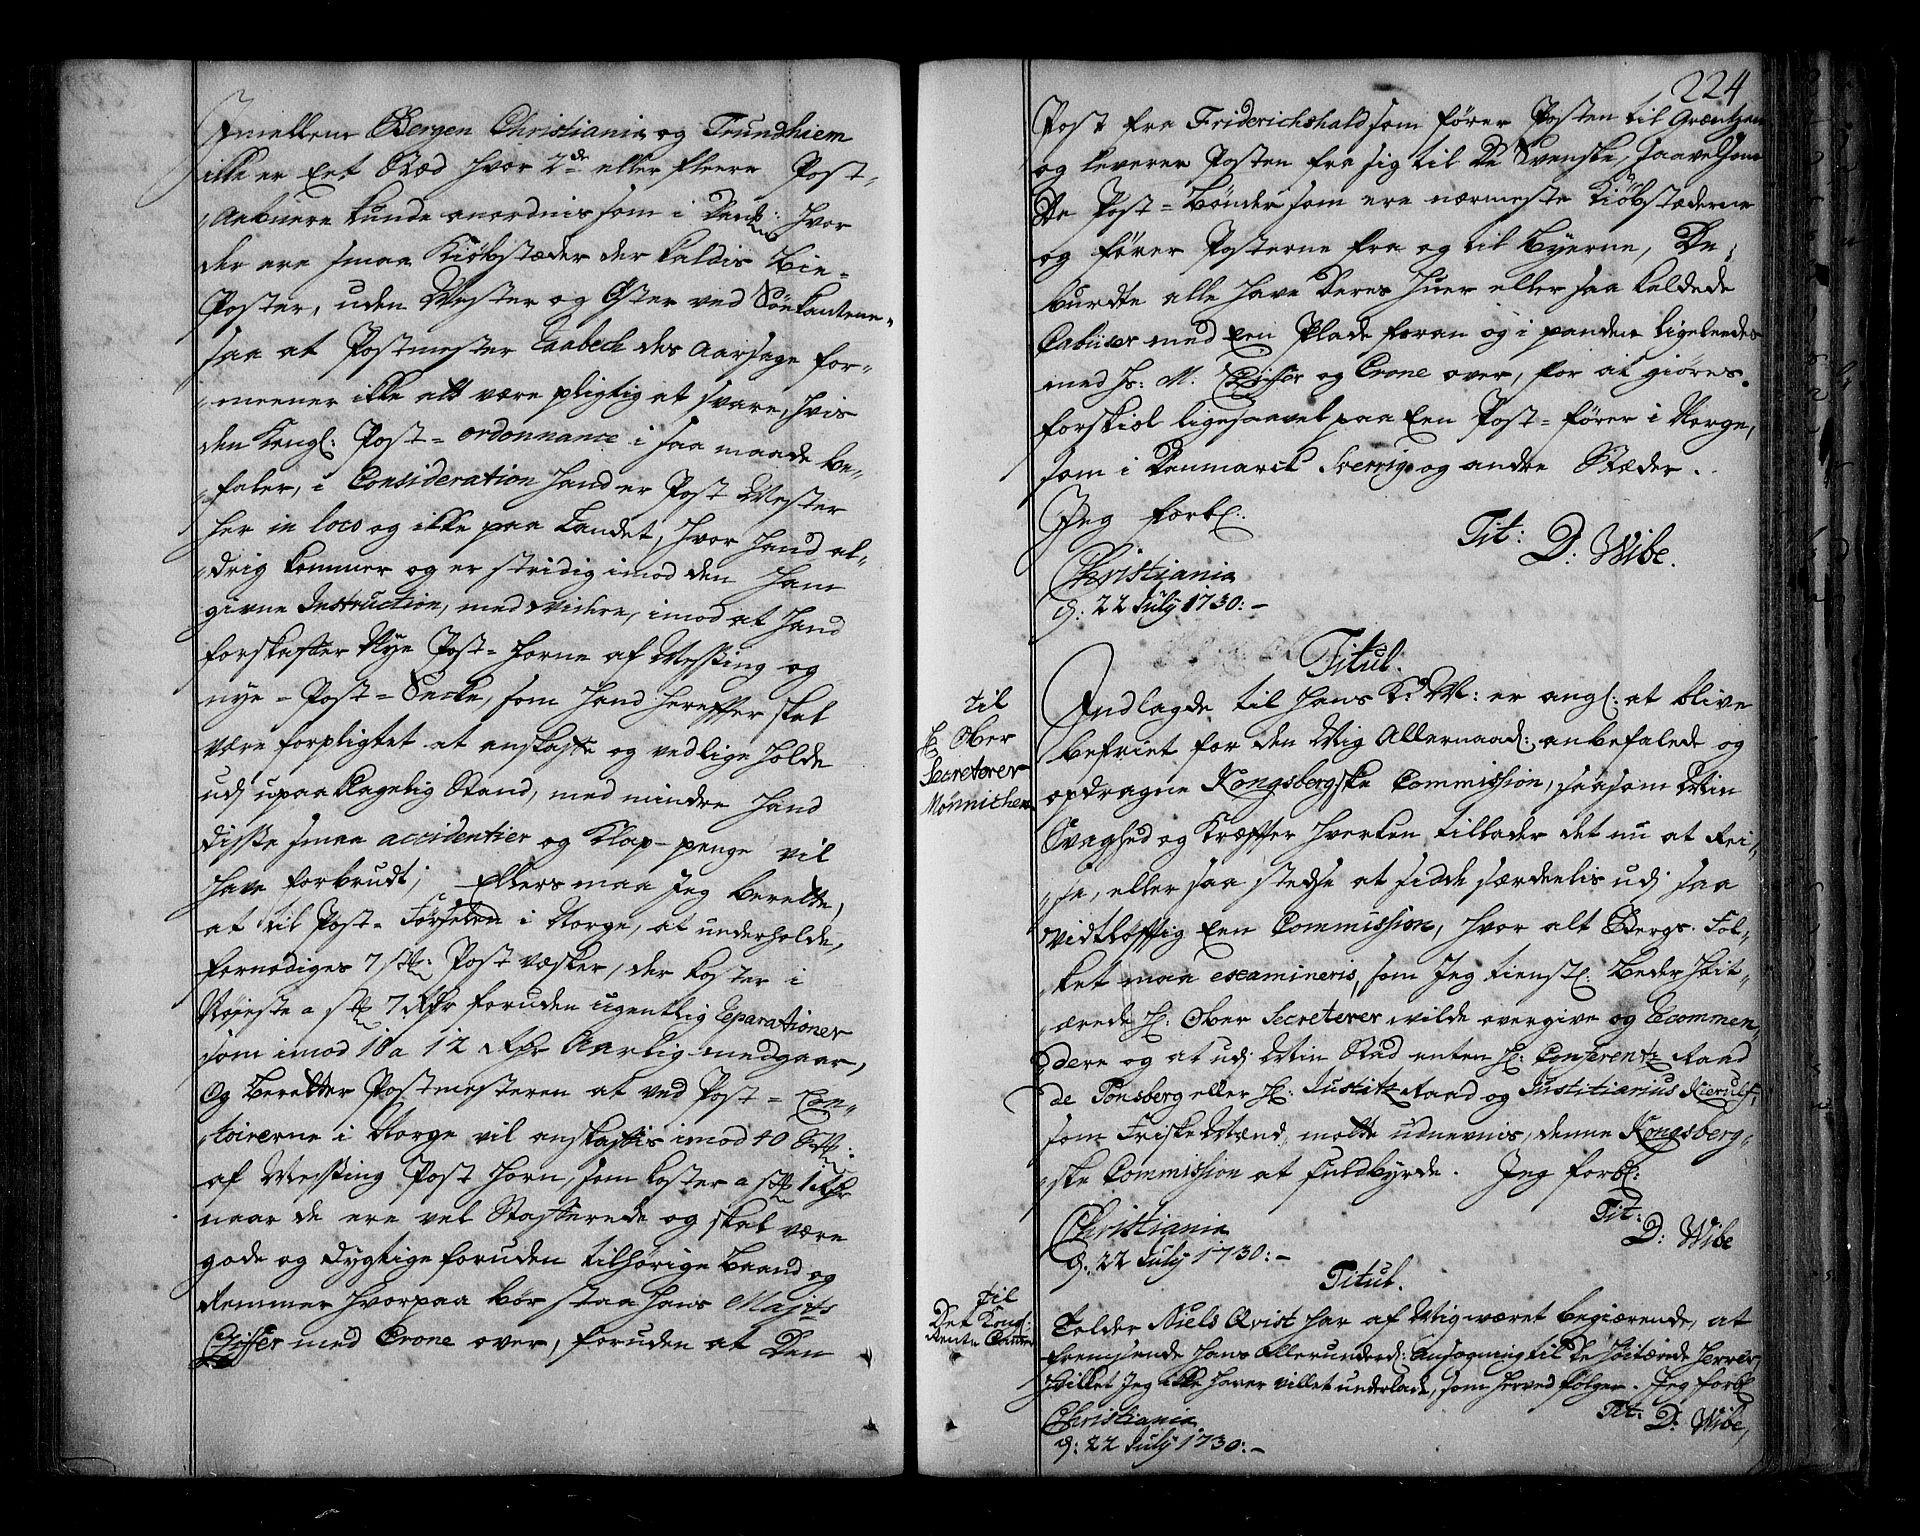 Imellem Bergen Christiania og Trundhiem
ikke er Eet Stæd hvor 2de eller fleere Post-
Aabnere kunde anordnis som i Danm: hvor
der ere smaa Kiøbstæder der kaldis Bie-
Poster, uden Vester og Øster ved Søekantene
saa at Postmester des Aarsage for-
meener ikke alt være pligtig at svare, hvis
den Kongl: Post-ordonnance i saa maade be-
faler, i Consideration hand er Post Mester
her in loco og ikke paa Landet, hvor hand al-
drig kommer og er stridig imod den ham
givne Instruction, med videre, imod at hand
forskaffer Nye Post-Horne af Messing og
nye-Post-Secke, som hand hereffter skal
være forpligtet at anskaffe og vedlige holde
udj upaaklagelig Stand, med mindre hand
disse smaa accidentier og Klap-penge vil
have forbrudt; Ellers maa Jeg berette,
at til Post-Førselen i Norge, at underholde,
fornødiges 7 stk: Post væsker, der koster i
Nøieste a stk 7 Rdr foruden ugentlig Reparationer
som imod 10 a 12 Rdr Aarlig medgaar,
Og beretter Postmesteren at ved Post-Con-
toirerne i Norge vil anskaffis imod 40 Stk:
af Messing Post Horn, som koster a stk 1 Rdr
naar de ere vel Stafferede og skal være
gode og dygtige foruden tilhørige Baand og
Remmer hvorpaa bør staa Hans Majts
Ziffer med Crone over, foruden at Den
224
Post fra Friderichshald som fører Posten til Grentzen
og leverer Posten fra sig til de Svenske, saavelsom
De Post-Bønder som ere nærmeste Kiøbstæderne
og fører Posterne fra og til Byerne, De
burdte alle have deres Huer eller saa kaldede
Cabuser med een Plade foran og i panden ligeleedes
med Hs: M. Ziffer og Crone over, for at giøres
forskiel ligesaavel paa Een Post-fører i Norge,
som i Danmarck Sverrig og andre Stæder.
Jeg forbl:
Tit: D: Wibe.
Christiania
d: 22 July 1730:-
Titul.
til
H Ober
Secreterer
Mønnichen
Indlagde til Hans K: M: er angl: at blive
befriet for den Mig Allernaad: anbefalede og
opdragne Kongsbergske Commission, saasom Min
Svaghed og Kræffter hverken tillader det nu at Rei-
se, eller saa stedse at sidde særdeelis udj saa
vidtløfftig Een Commission, hvor alt Bergs-Fol-
ket maa examineris, som Jeg tienstl: beder Høit-
ærede H: Ober Secreterer wilde overgive og Recommen-
dere og at udj Min Stad enten H: Conferentz Raad
de Tonsberg eller H: Justitz Raad og Justitiarius Kierulf,
som Friske Mænd, motte udnevnis, denne Kongsberg-
ske Commission at fuldbyrde. Jeg forbl:
Tit:
D: Wibe
Christiania
d: 22 July 1730:-
Titul.
til
Det Kongl:
Rente Cammer
Niels Qvist har af Mig været begiærende, at
fremsende hans Allerunderd: Ansøgning til de Høitærede Herrer,
hvilket Jeg ikke haver villet underlade, som herved følger. Jeg forbl
Tit: D: Wibe,
Christiania
d: 22 July 1730:-